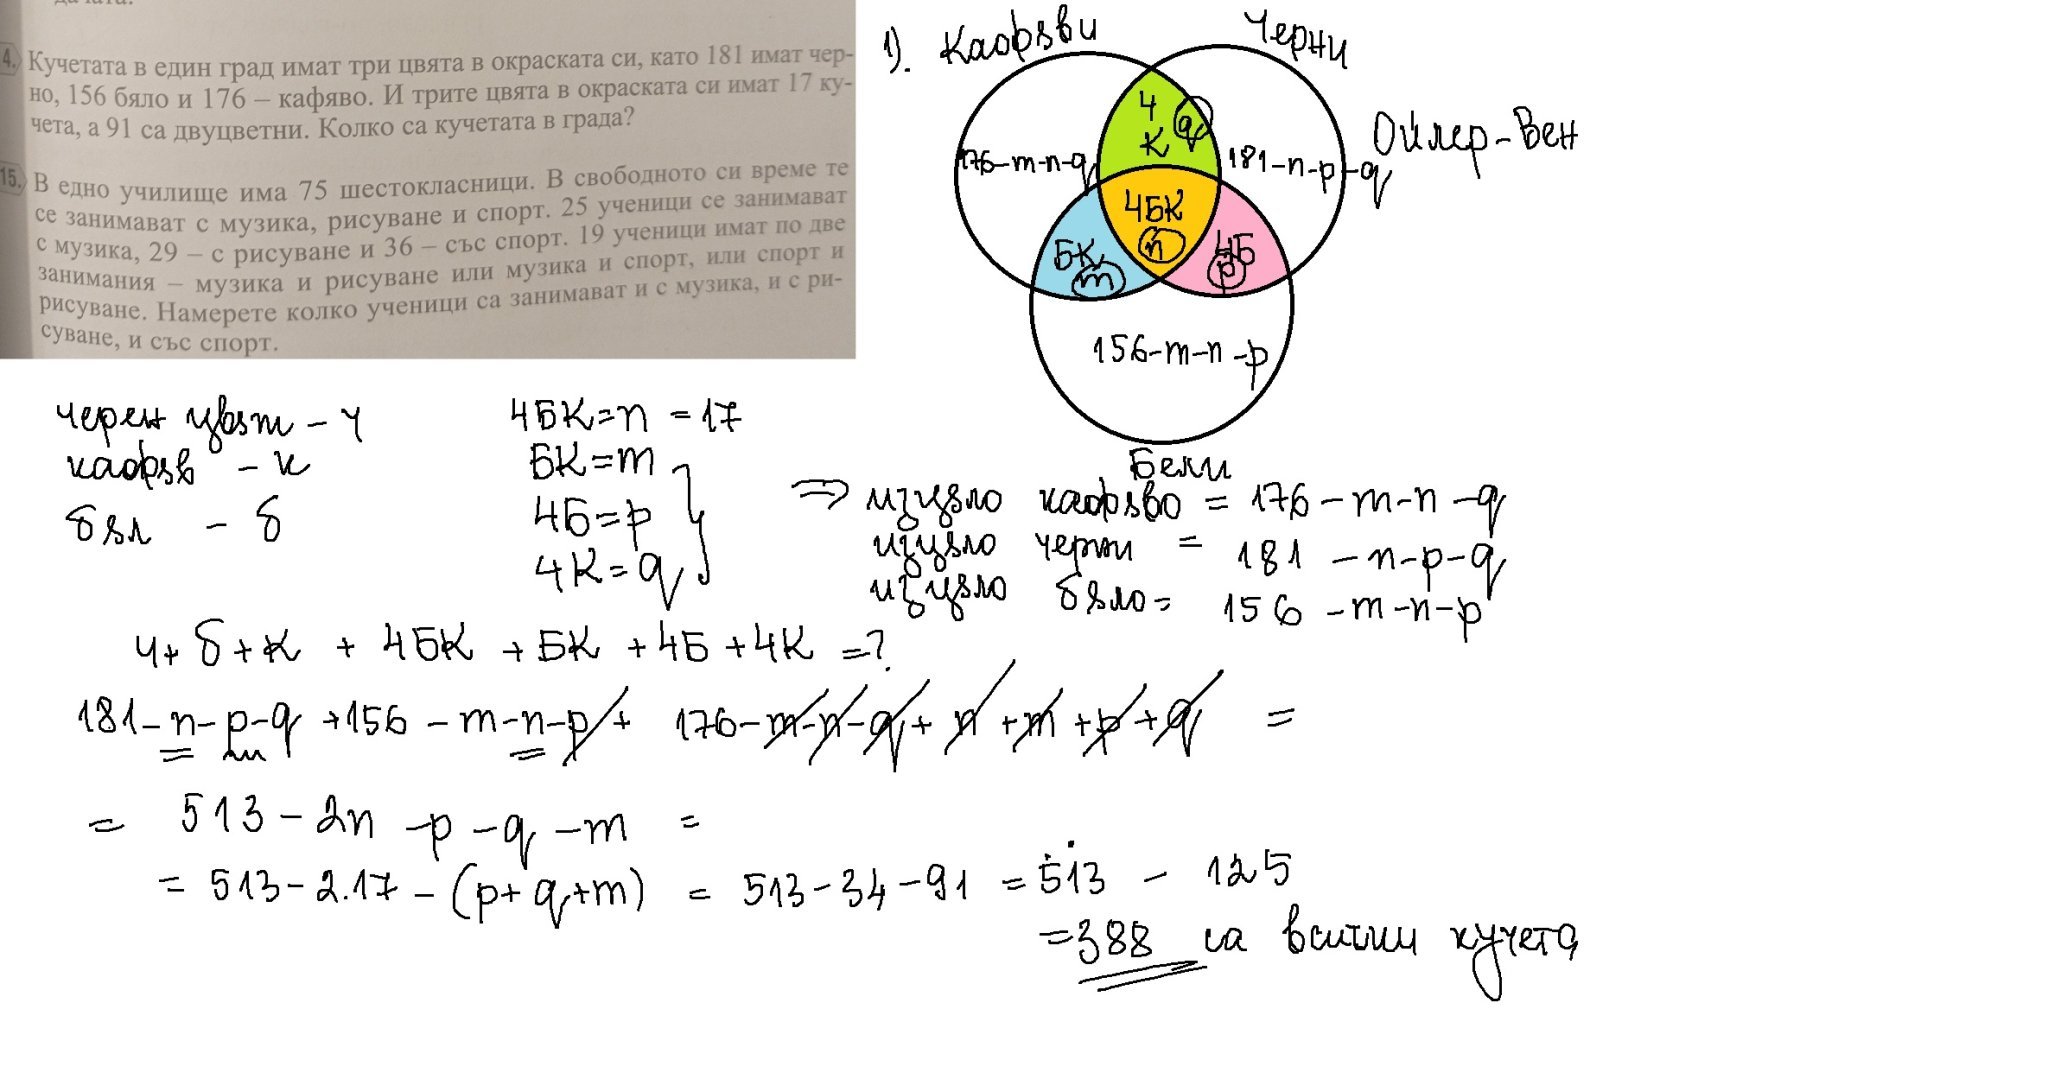 дачата.
4. Кучетата в един град имат три цвята в окраската си, като 181 имат чер-
но, 156 бяло и 176 – кафяво. И трите цвята в окраската си имат 17 ку-
чета, а 91 са двуцветни. Колко са кучетата в града?
15. В едно училище има 75 шестокласници. В свободното си време те
се занимават с музика, рисуване и спорт. 25 ученици се занимават
с музика, 29 – с рисуване и 36 – със спорт. 19 ученици имат по две
занимания – музика и рисуване или музика и спорт, или спорт и
рисуване. Намерете колко ученици са занимават и с музика, и с ри-
суване, и със спорт.
1). Кафяви
Черни
Ойлер-Вен
Ч q
К
176-m-n-q
181-n-p-q
ЧБК
n
БК
m
ЧБ
p
156-m-n-p
Бели
черен цвят - Ч
кафяв - к
бял - б
ЧБК=n = 17
БК=m
ЧБ=p
ЧК=q
=> изцяло кафяво = 176-m-n-q
изцяло черни = 181-n-p-q
изцяло бяло= 156-m-n-p
Ч+ б+к + ЧБК + БК + ЧБ +ЧК =?
181-n-p-q +156-m-n-p+ 176-m-n-q+ n +m +p+q =
= 513-2n -p-q-m =
= 513-2.17-(p+q+m) = 513-34-91 = 513 - 125
=388 са всички кучета